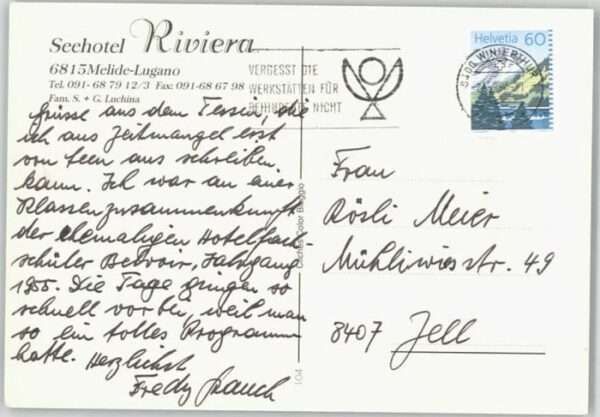 Seehotel Riviera
6815 Melide-Lugano
Tel. 091-68 79 12/3 Fax: 091-68 67 98
Fam. S. + G. Luchina
VERGESST DIE
WERKSTÄTTEN FÜR
BEHINDERTE NICHT
8400 WINTERTHUR
Helvetia 60
Grüsse aus dem Tessin, die
ich aus Zeitmangel erst
von hier aus schreiben
kann. Ich war an einer
Klassenzusammenkunft
der ehemaligen Hotelfach-
schüler Jahrgang
1955. Die Tage gingen so
schnell vorbei, weil man
so ein tolles Programm
hatte. Herzlichst
Fredy Rauch
Frau
Rösli Meier
Mühliwiesstr. 49
8407 Jell
104